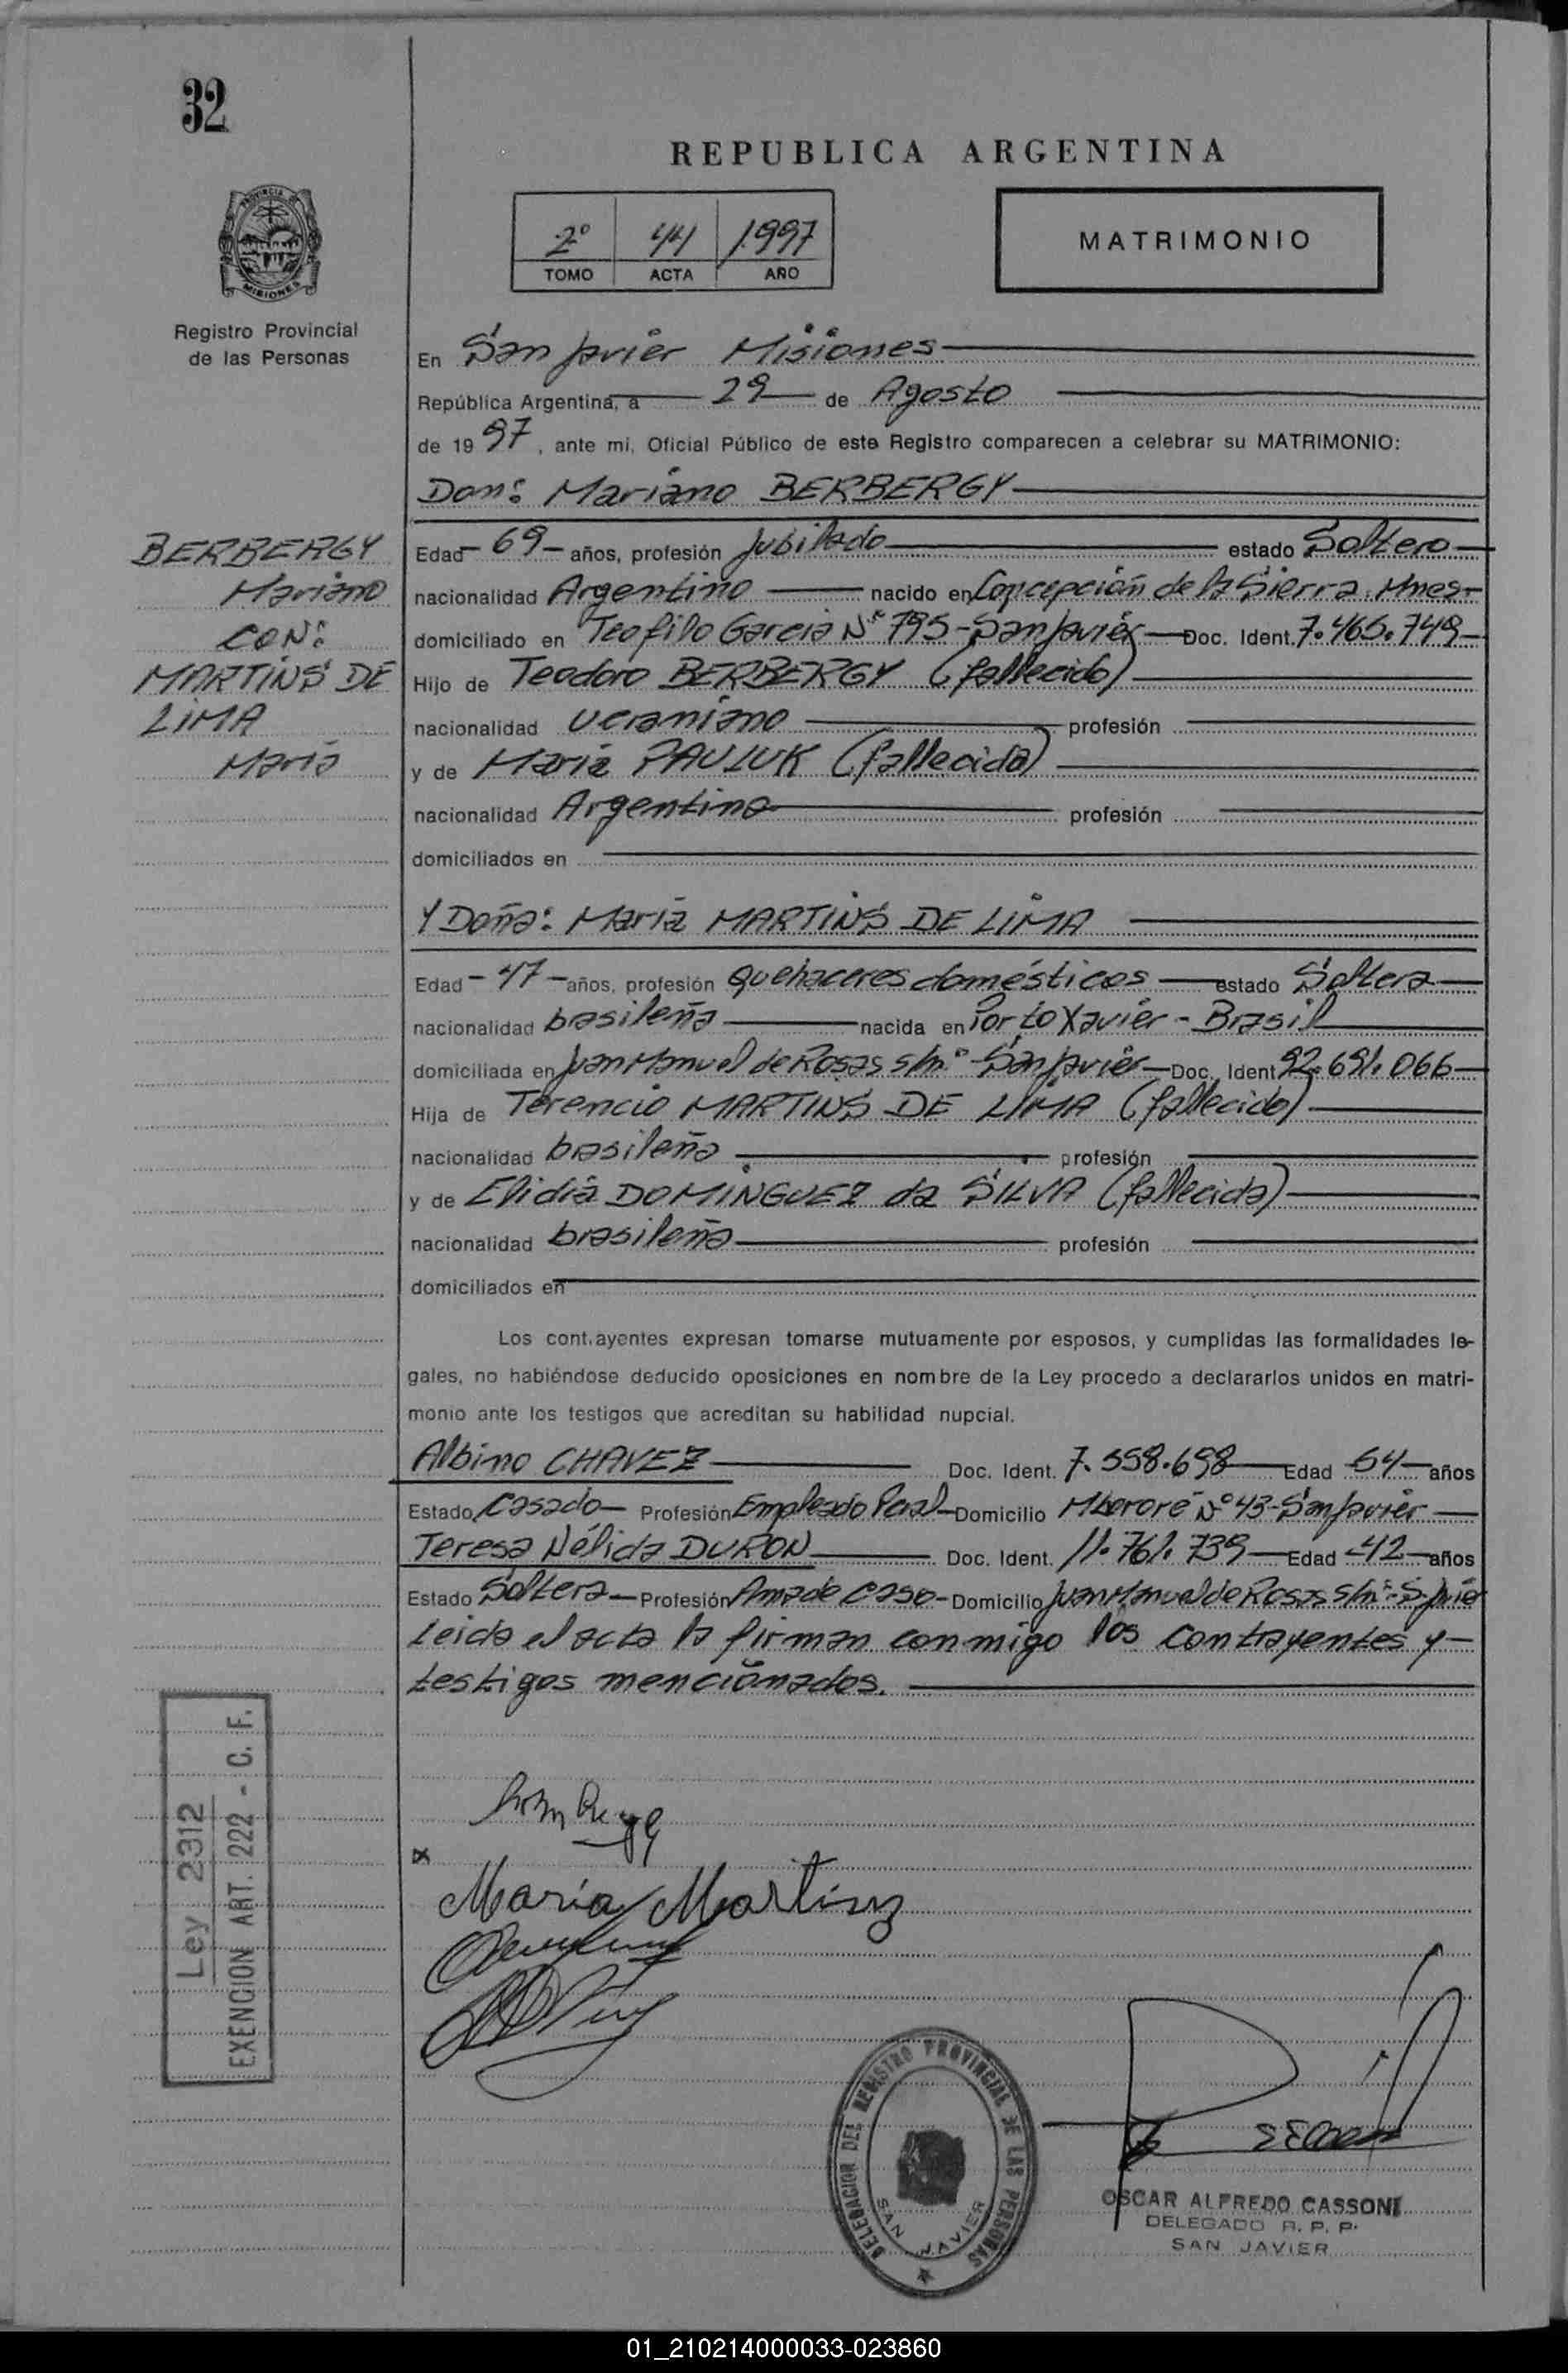 32
REPUBLICA ARGENTINA
2º 44 1997
TOMO ACTA AÑO
MATRIMONIO
PROVINCIA DE
MISIONES
Registro Provincial
de las Personas
En San Javier Misiones
República Argentina, a 29 de Agosto
de 19 97, ante mi, Oficial Público de este Registro comparecen a celebrar su MATRIMONIO:
Don: Mariano BERBERGY
BERBERGY
Mariano
CON:
MARTINS DE
LIMA
Maria
Edad - 69 - años, profesión Jubilado estado Soltero
nacionalidad Argentino nacido en Concepción de la Sierra. Mnes-
domiciliado en Teofilo Garcia Nº 795 - San Javier - Doc. Ident. 7.465.749-
Hijo de Teodoro BERBERGY (fallecido)
nacionalidad Ucraniano profesión
y de Maria PAULUK (fallecida)
nacionalidad Argentina profesión
domiciliados en
Y Doña: Maria MARTINS DE LIMA
Edad - 47 - años, profesión Quehaceres domésticos estado Soltera
nacionalidad brasileña nacida en Porto Xavier - Brasil
domiciliada en Juan Manuel de Rosas s/nº - San Javier - Doc. Ident. 92.691.066
Hija de Terencio MARTINS DE LIMA (fallecido)
nacionalidad brasileña profesión
y de Elidia DOMINGUEZ da SILVA (fallecida)
nacionalidad brasileña profesión
domiciliados en
Los cont.ayentes expresan tomarse mutuamente por esposos, y cumplidas las formalidades le-
gales, no habiéndose deducido oposiciones en nombre de la Ley procedo a declararlos unidos en matri-
monio ante los testigos que acreditan su habilidad nupcial.
Albino CHAVEZ Doc. Ident. 7.558.698 Edad 54 años
Estado Casado - Profesión Empleado Domicilio Mbororé Nº 43 - San Javier
Teresa Nélida DURON Doc. Ident. 11.761.739 - Edad 42 - años
Estado Soltera - Profesión Ama de Casa - Domicilio Juan Manuel de Rosas s/nº - S. Javier
Leida el acta la firman conmigo los contrayentes y-
testigos mencionados.
Ley 2312
EXENCION ART. 222 - C. F.
Maria Martinz
DELEGACION DEL REGISTRO PROVINCIAL DE LAS PERSONAS
SAN JAVIER
OSCAR ALFREDO CASSONI
DELEGADO R. P. P.
SAN JAVIER
01_210214000033-023860